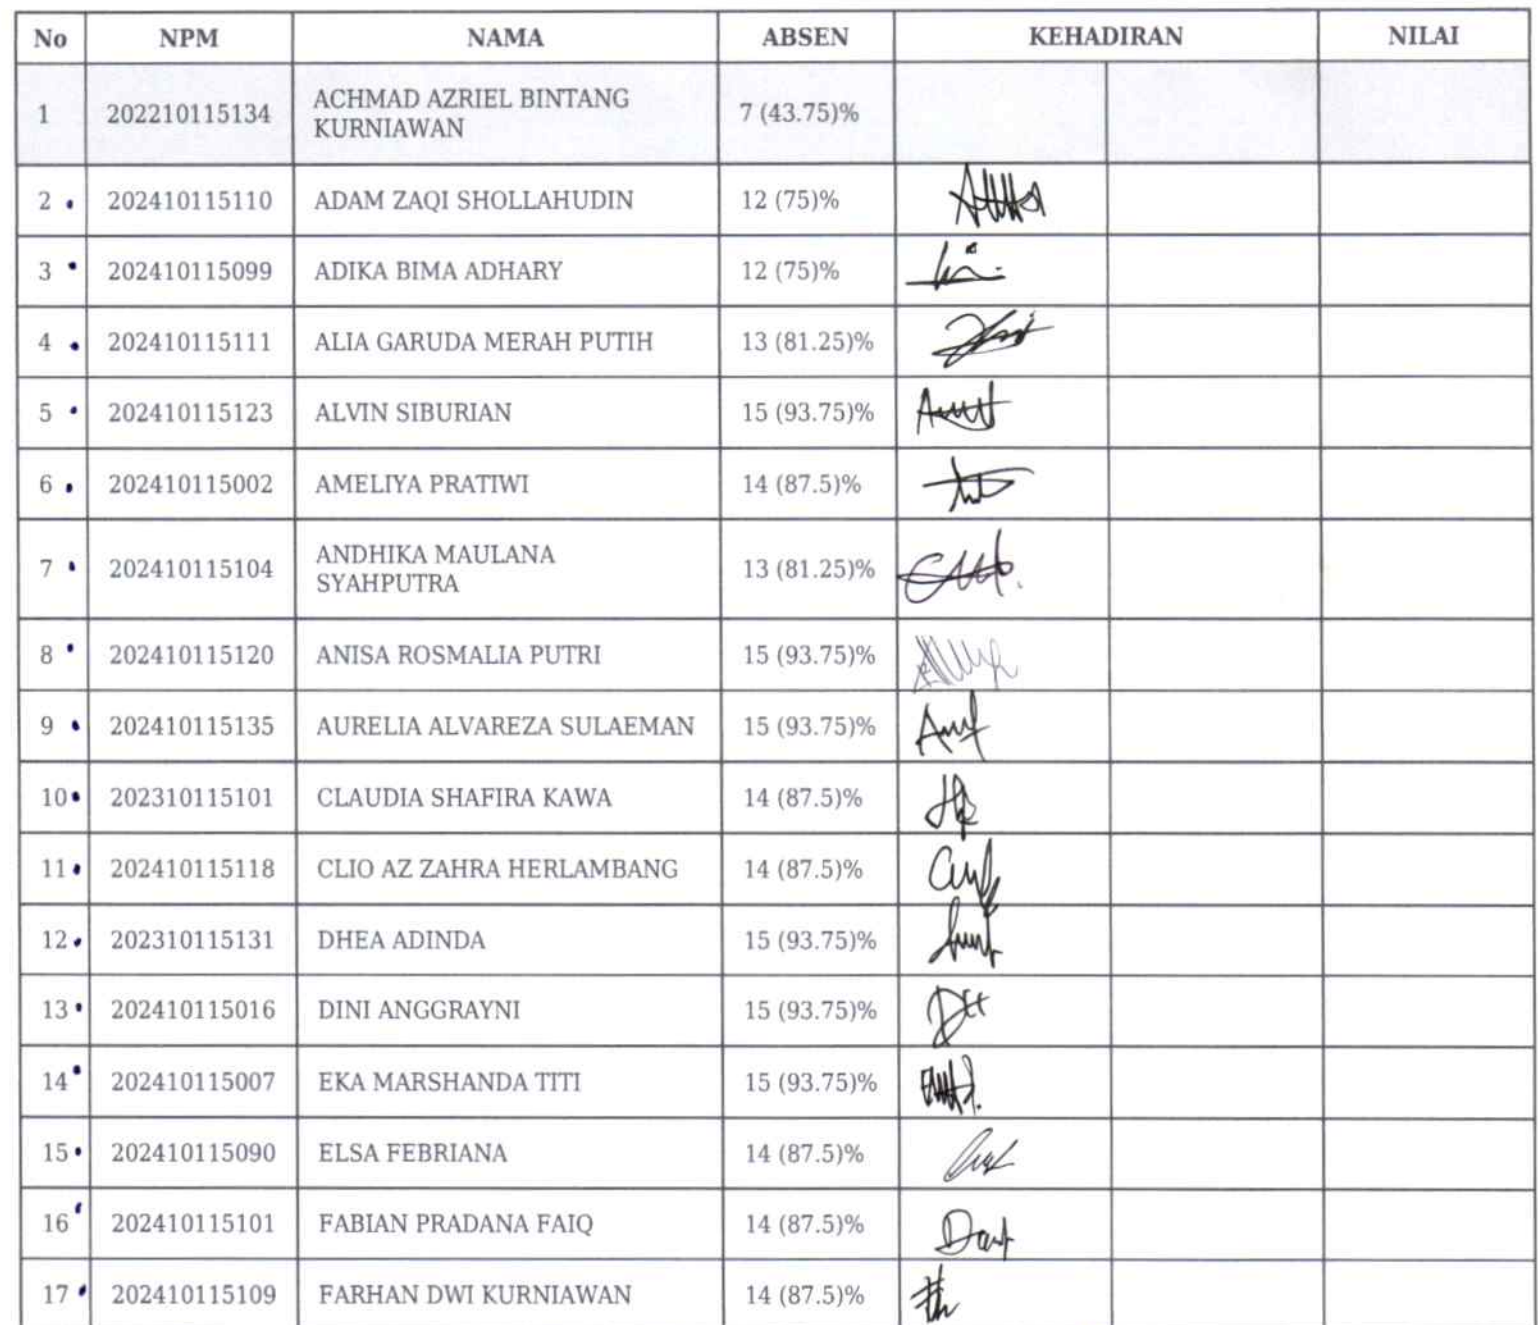 No NPM NAMA ABSEN KEHADIRAN NILAI
1 202210115134 ACHMAD AZRIEL BINTANG 7 (43.75)%
KURNIAWAN
2 202410115110 ADAM ZAQI SHOLLAHUDIN 12 (75)%
3 202410115099 ADIKA BIMA ADHARY 12 (75)%
4 202410115111 ALIA GARUDA MERAH PUTIH 13 (81.25)%
5 202410115123 ALVIN SIBURIAN 15 (93.75)%
6 202410115002 AMELIYA PRATIWI 14 (87.5)%
7 202410115104 ANDHIKA MAULANA 13 (81.25)%
SYAHPUTRA
8 202410115120 ANISA ROSMALIA PUTRI 15 (93.75)%
9 202410115135 AURELIA ALVAREZA SULAEMAN 15 (93.75)%
10 202310115101 CLAUDIA SHAFIRA KAWA 14 (87.5)%
11 202410115118 CLIO AZ ZAHRA HERLAMBANG 14 (87.5)%
12 202310115131 DHEA ADINDA 15 (93.75)%
13 202410115016 DINI ANGGRAYNI 15 (93.75)%
14 202410115007 EKA MARSHANDA TITI 15 (93.75)%
15 202410115090 ELSA FEBRIANA 14 (87.5)%
16 202410115101 FABIAN PRADANA FAIQ 14 (87.5)%
17 202410115109 FARHAN DWI KURNIAWAN 14 (87.5)%